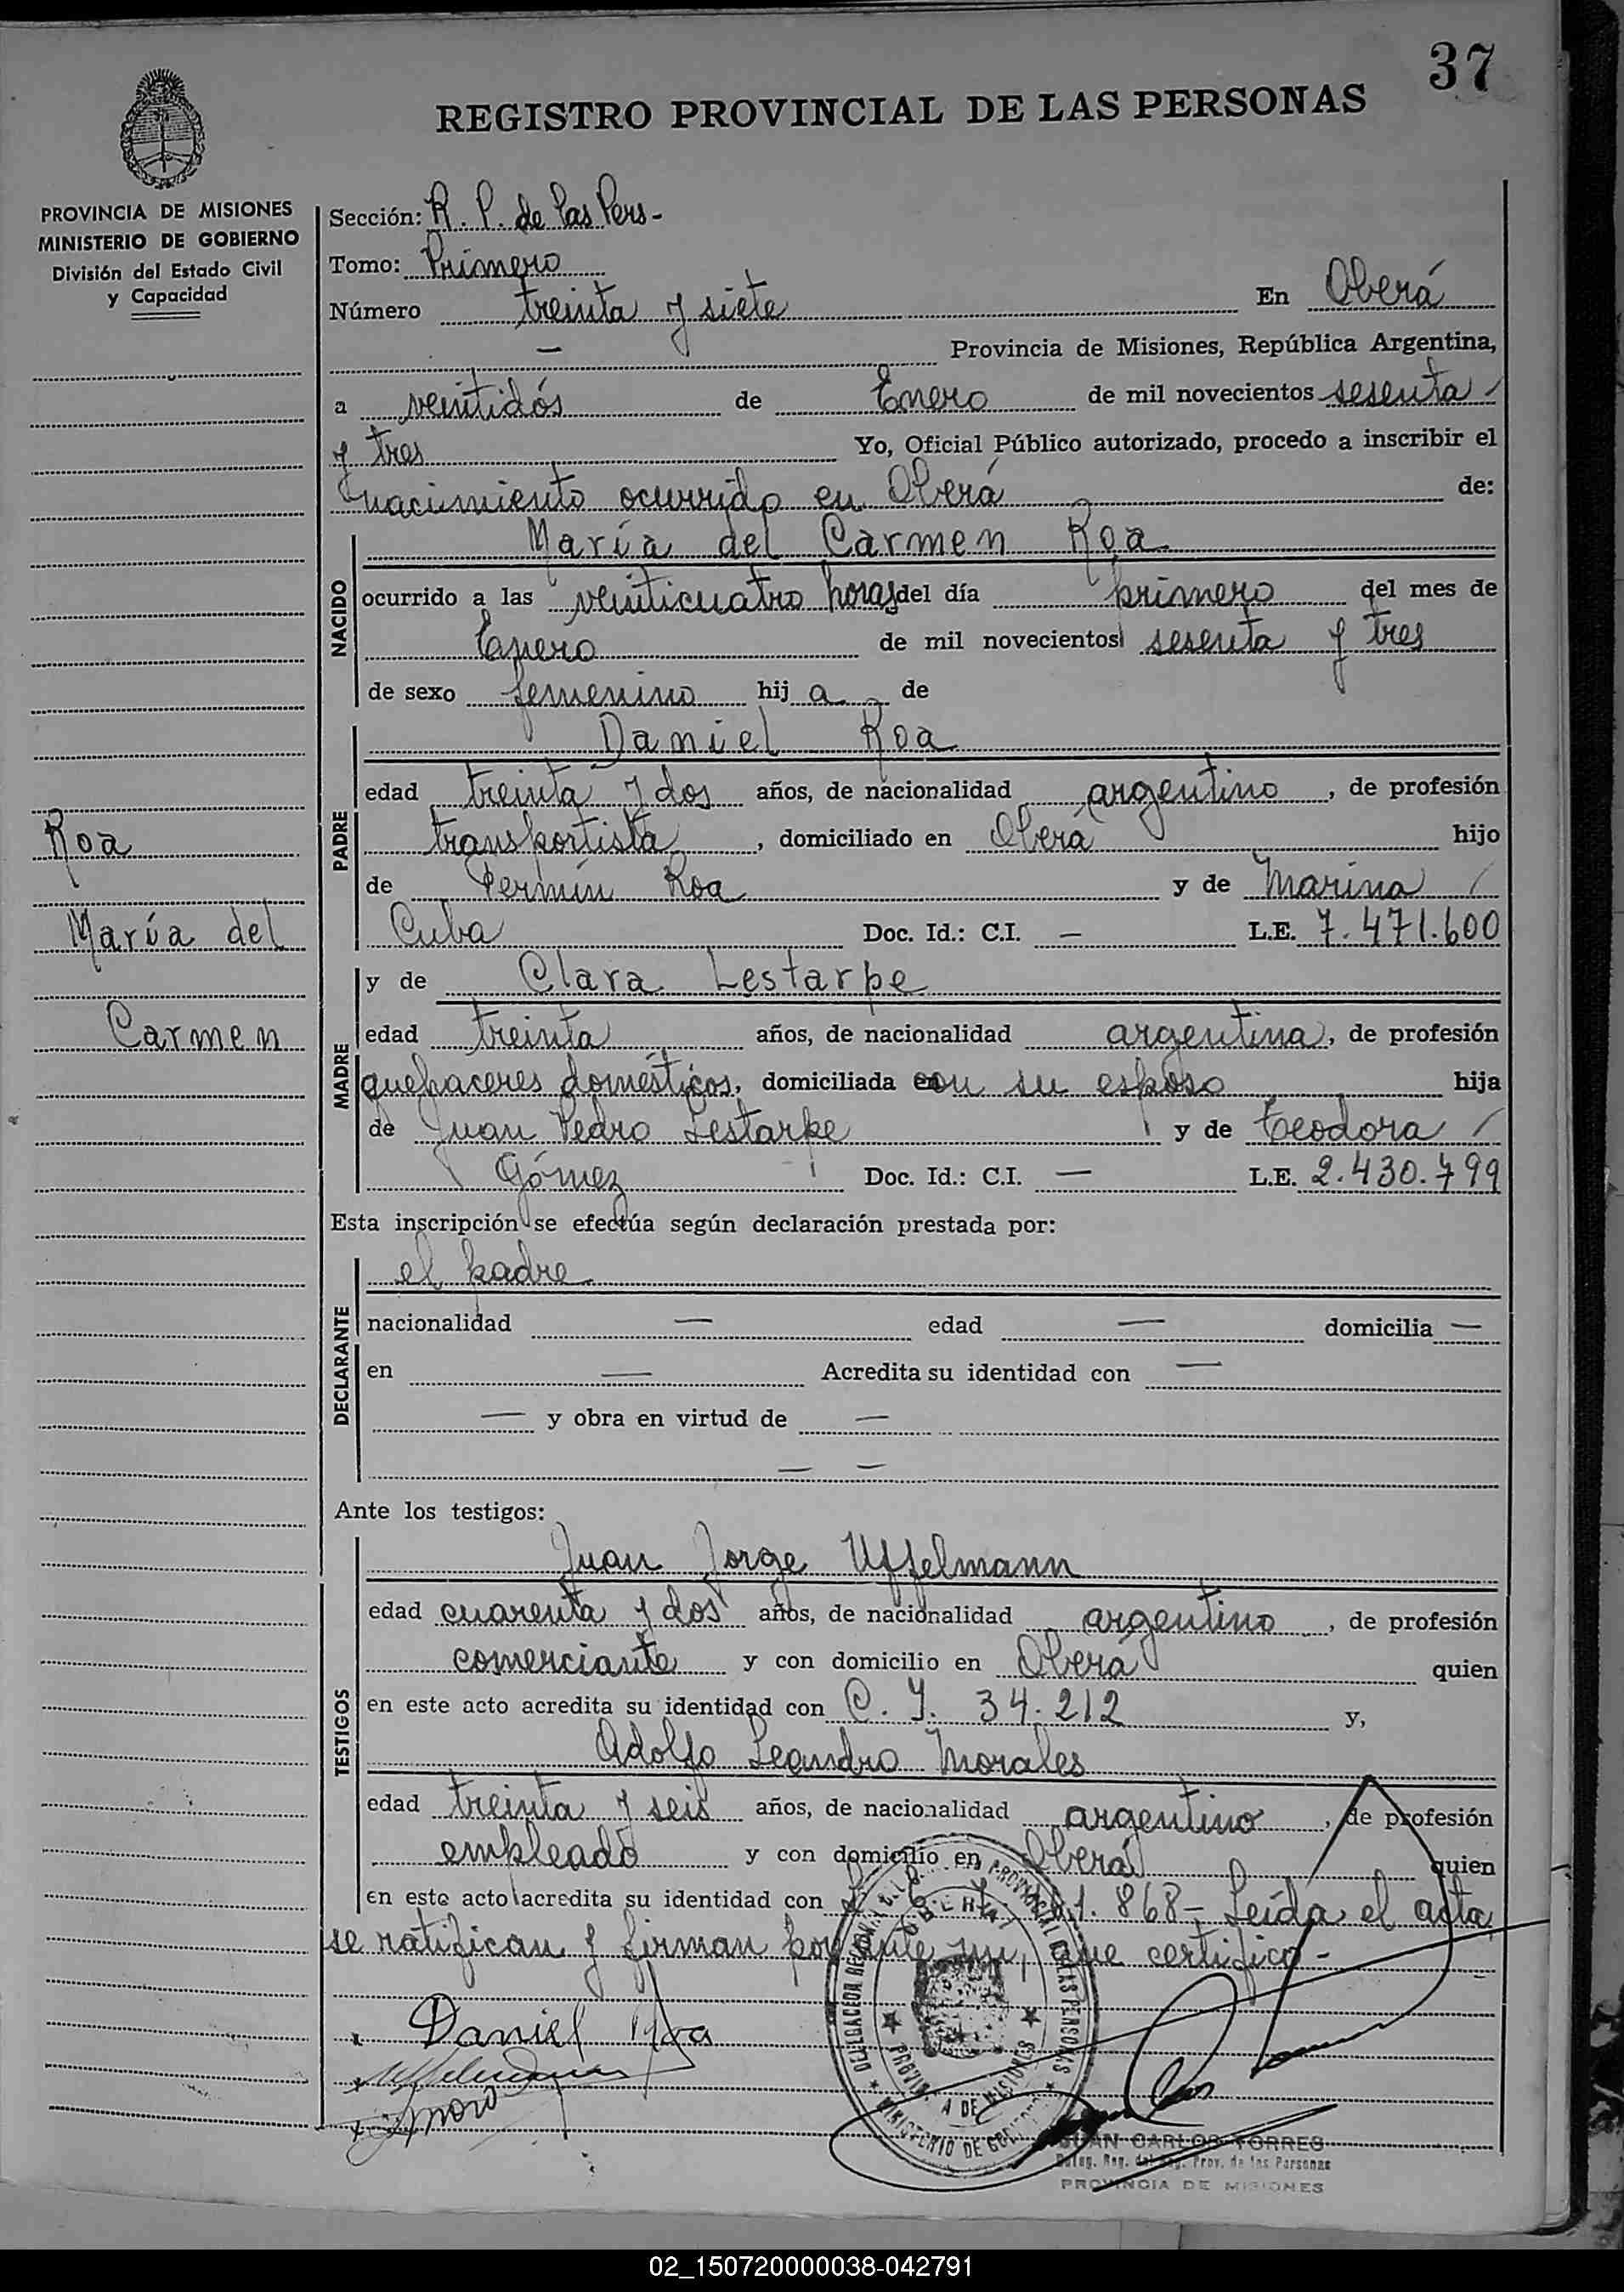 37
REGISTRO PROVINCIAL DE LAS PERSONAS
PROVINCIA DE MISIONES
MINISTERIO DE GOBIERNO
División del Estado Civil
y Capacidad
Roa
María del
Carmen
Sección: R. P. de las Pers-
Tomo: Primero
Número treinta y siete En Oberá
— Provincia de Misiones, República Argentina,
a veintidós de Enero de mil novecientos sesenta
y tres Yo, Oficial Público autorizado, procedo a inscribir el
nacimiento ocurrido en Oberá de:
NACIDO
María del Carmen Roa
ocurrido a las veinticuatro horas del día primero del mes de
Enero de mil novecientos sesenta y tres
de sexo femenino hija de
PADRE
Daniel Roa
edad treinta y dos años, de nacionalidad argentino, de profesión
transportista, domiciliado en Oberá hijo
de Fermín Roa y de Marina
Cuba Doc. Id.: C.I. — L.E. 7.471.600
MADRE
y de Clara Lestarpe
edad treinta años, de nacionalidad argentina, de profesión
quehaceres domésticos, domiciliada con su esposo hija
de Juan Pedro Lestarpe y de Teodora
Gómez Doc. Id.: C.I. — L.E. 2.430.799
Esta inscripción se efectúa según declaración prestada por:
DECLARANTE
el padre
nacionalidad — edad — domicilia —
en — Acredita su identidad con —
— y obra en virtud de —
— —
Ante los testigos:
TESTIGOS
Juan Jorge Uffelmann
edad cuarenta y dos años, de nacionalidad argentino, de profesión
comerciante y con domicilio en Oberá quien
en este acto acredita su identidad con C. I. 34.212 y,
Adolfo Leandro Morales
edad treinta y seis años, de nacionalidad argentino, de profesión
empleado y con domicilio en Oberá quien
en este acto acredita su identidad con 868- Leída el acta,
se ratifican y firman por ante mí, que certifico-
Daniel Roa
MINISTERIO DE GOBIERNO
PROVINCIA DE MISIONES
JUAN CARLOS TORRES
Deleg. Reg. del Reg. Prov. de las Personas
PROVINCIA DE MISIONES
02_150720000038-042791